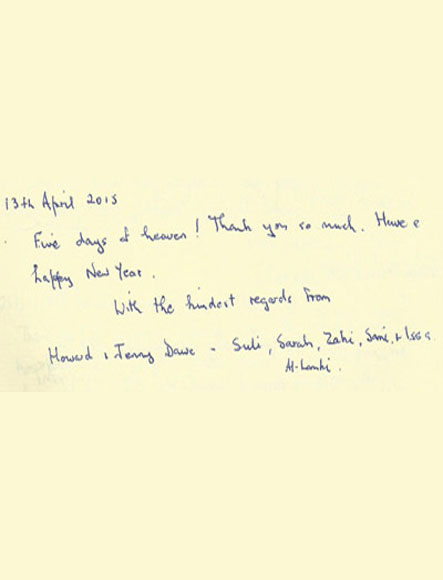 13th April 2015
Five days of heaven! Thank you so much. Have a
happy New Year.
With the kindest regards from
Howard & Jenny Dawe - Suli, Sarah, Zahi, Sami, & Issa
Al-Lamki.